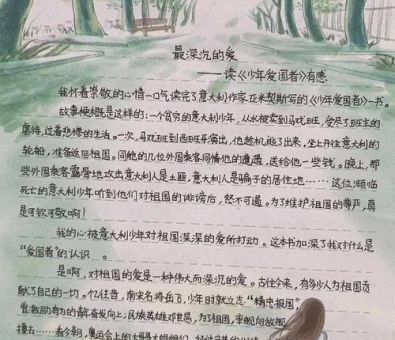 最深沉的爱
——读《少年爱国者》有感
我怀着崇敬的心情一口气读完了意大利作家亚米契斯写的《少年爱国者》一书。
故事梗概是这样的:一个贫穷的意大利少年,从小被卖到马戏班,受尽了班主的
虐待,过着悲惨的生活。一次,马戏班到西班牙演出,他趁机逃了出来,坐上开往意大利的
轮船,准备返回祖国。同船的几位外国乘客同情他的遭遇,送给他一些钱。晚上,那
些外国乘客嚣地攻击意大利人是土匪,意大利人是骗子的居住地……这位濒临
死亡的意大利少年听到他们对祖国的诽谤后,怒不可遏。为了维护祖国的尊严,真
是可钦可敬啊!
我的心被意大利少年对祖国深深的爱所打动。这本书加深了我对什么是
“爱国者”的认识。
是啊,对祖国的爱是一种伟大而深沉的爱。古往今来,有多少人为祖国贡
献了自己的一切。忆往昔,南宋名将岳飞,少年时就立志“精忠报国”,
奋发向上;民族英雄邓世昌,为了祖国,率舰向敌舰
撞去……看今朝,奥运会上的